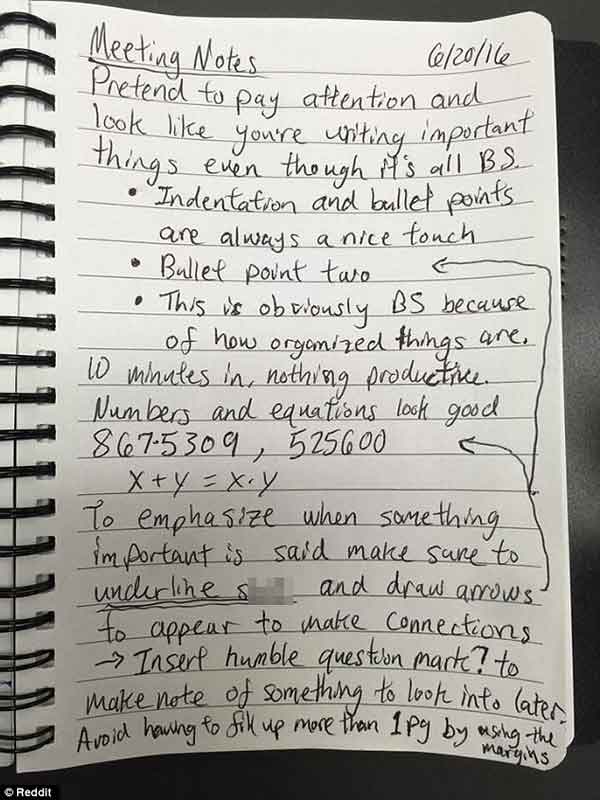 Meeting Notes 6/20/16
Pretend to pay attention and
look like you're writing important
things even though it's all BS.
• Indentation and bullet points
are always a nice touch
• Bullet point two
• This is obviously BS because
of how organized things are.
10 minutes in, nothing productive.
Numbers and equations look good
867-5309, 525600
x + y = x · y
To emphasize when something
important is said make sure to
underline s and draw arrows
to appear to make connections
→ Insert humble question mark? to
make note of something to look into later.
Avoid having to fill up more than 1 pg by using the
margins
© Reddit